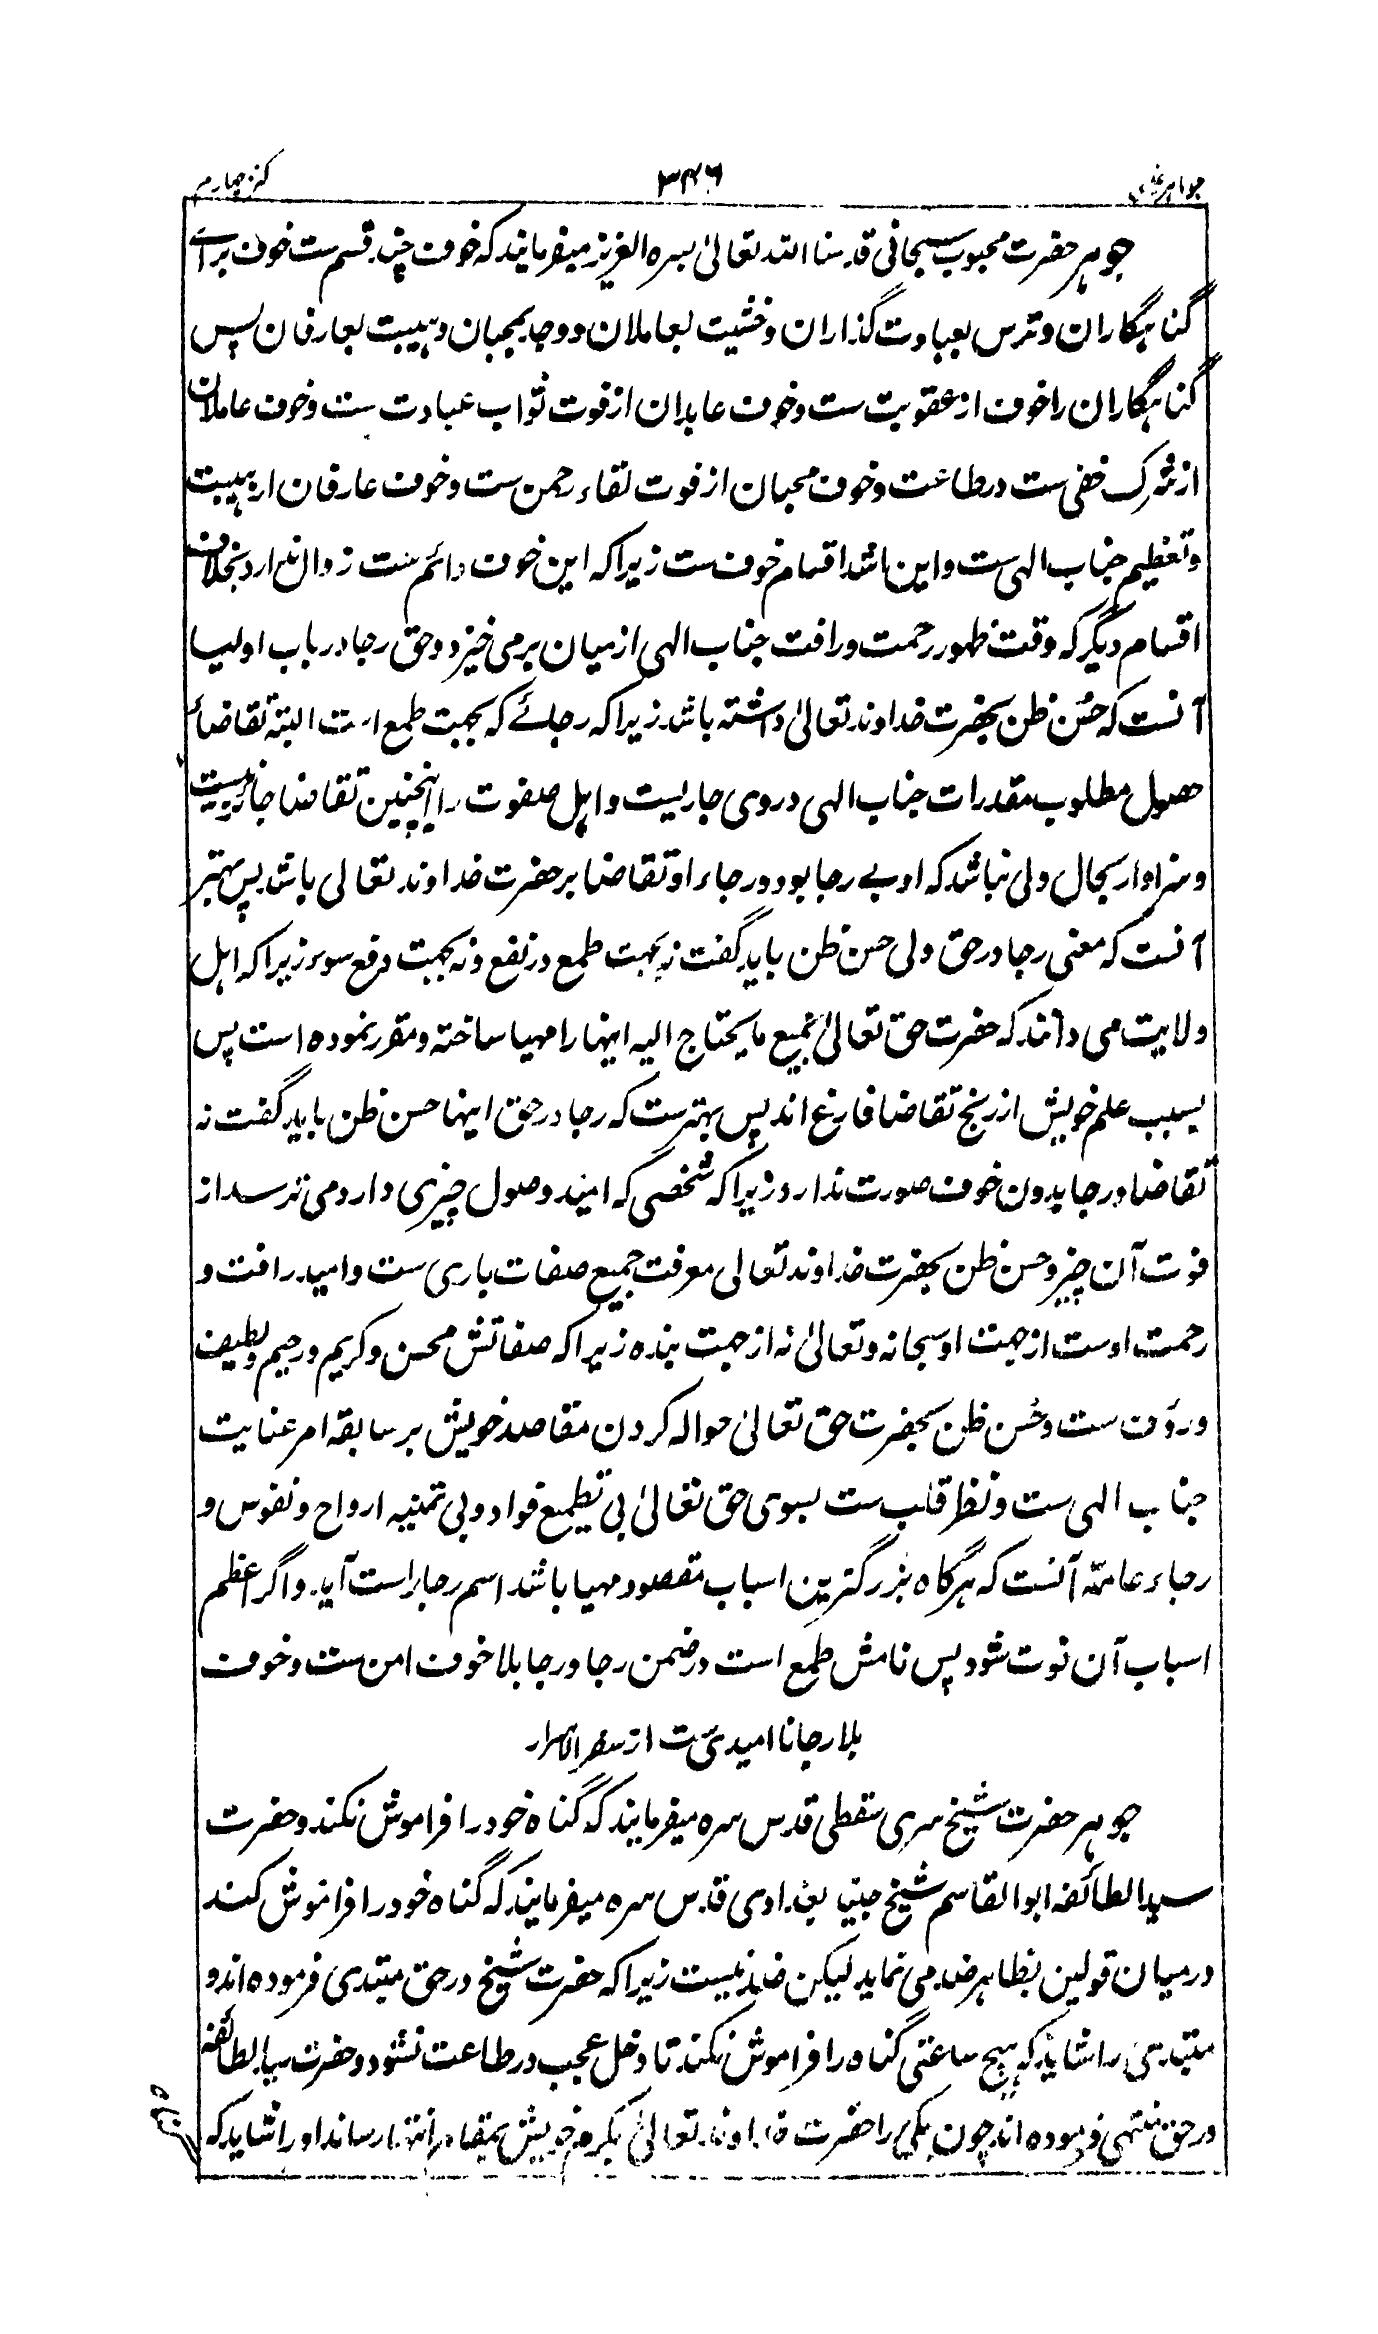 جواهر غیبی ۳۴۶ کنز چهارم
جوهر حضرت محبوب سبحانی قدسنا الله تعالیٰ بسره العزیز میفرمایند که خوف چند قسم ست خوف برای
گناهگاران و ترس بعبادت گذاران و خشیت بعاملان و وجد بمحبان و هیبت بعارفان پس
گناهگاران را خوف از عقوبت ست و خوف عابدان از فوت ثواب عبادت ست و خوف عاملان
از شرک خفی ست در طاعت و خوف محبان از فوت لقاء رحمن ست و خوف عارفان از هیبت
و تعظیم جناب الهی ست و این اشد اقسام خوف ست زیرا که این خوف دائم ست زوال ندارد بخلاف
اقسام دیگر که وقت ظهور رحمت و رافت جناب الهی از میان برمی خیزد و حق رجا در باب اولیا
آنست که حُسن ظن بحضرت خداوند تعالیٰ داشته باشد زیرا که رجائے که بجهت طمع است البته تقاضاے
حصول مطلوب مقدرات جناب الهی در وی جاریست و اهل صفوت را اینچنین تقاضا جائز نیست
و سزاوار بحال ولی نباشد که او بے رجا بود و رجاء او تقاضا بر حضرت خداوند تعالی باشد پس بهتر
آنست که معنی رجا در حق ولی حسن ظن باید گفت نه بجهت طمع در نفع و نه بجهت دفع سوء زیرا که اهل
ولایت می دانند که حضرت حق تعالیٰ جمیع ما یحتاج الیه اینها را مهیا ساخته و مقرر نموده است پس
بسبب علم خویش از رنج تقاضا فارغ اند پس بهترست که رجا در حق اینها حسن ظن باید گفت نه
تقاضا و رجا بدون خوف صورت ندارد زیرا که شخصی که امید وصول چیزی دارد می ترسد از
فوت آن چیز و حسن ظن بحضرت خداوند تعالی معرفت جمیع صفات باری ست و امید رافت و
رحمت اوست از جهت او سبحانه و تعالیٰ نه از جهت بنده زیرا که صفاتش محسن و کریم و رحیم و لطیف
و رؤف ست و حُسن ظن بحضرت حق تعالیٰ حواله کردن مقاصد خویش بر سابقه امر عنایت
جناب الهی ست و نظر قلب ست بسوی حق تعالیٰ بی تطمیع فواد و بی تمنیه ارواح و نفوس و
رجاء عامّه آنست که هرگاه بزرگترین اسباب مقصود مهیا باشد اسم رجا براست آید و اگر اعظم
اسباب آن فوت شود پس نامش طمع است در ضمن رجا و رجا بلا خوف امن ست و خوف
بلا رجا ناامیدی ست از سفر الاسرار
جوهر حضرت شیخ سری سقطی قدس سره میفرمایند که گناه خود را فراموش نکند و حضرت
سید الطائفه ابوالقاسم شیخ جنید بغدادی قدس سره میفرمایند که گناه خود را فراموش کند
درمیان قولین بظاهر ضد می نماید لیکن ضد نیست زیرا که حضرت شیخ در حق مبتدی فرموده اند و
مبتدی را شاید که هیچ ساعتی گناه را فراموش نکند تا دخل عجب در طاعت نشود و حضرت سید الطائفه
در حق منتهی فرموده اند چون یکی را حضرت خداوند تعالیٰ بکرم خویش بمقام انتها رساند او را شاید که
گناه